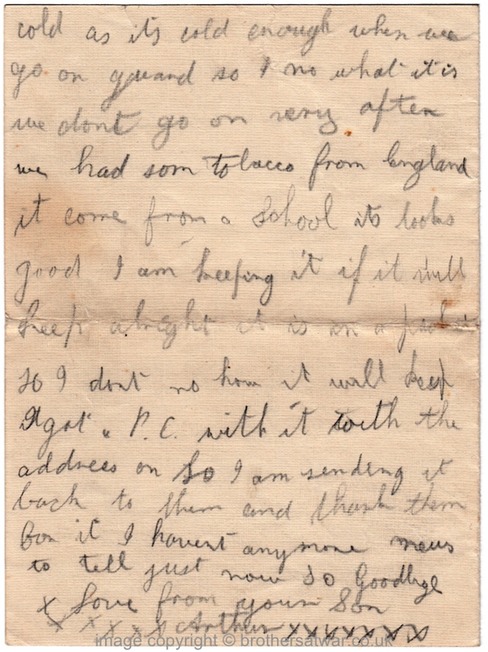 cold as its cold enough when we
go on gquard so I no what it is
we dont go on very after
we had som tobacco from England
it come from a School its looks
good I am keeping it if it will
keep alreght it is in a
so I dont no how it will keep
I got a P.C. with it with the
address on so I am sending it
back to them and thank them
for it I havent anymore news
to tell just now so Goodbye
x Love from your Son
x x x x x Arthur x x x x x x x x
image copyright © brothersatwar.co.uk